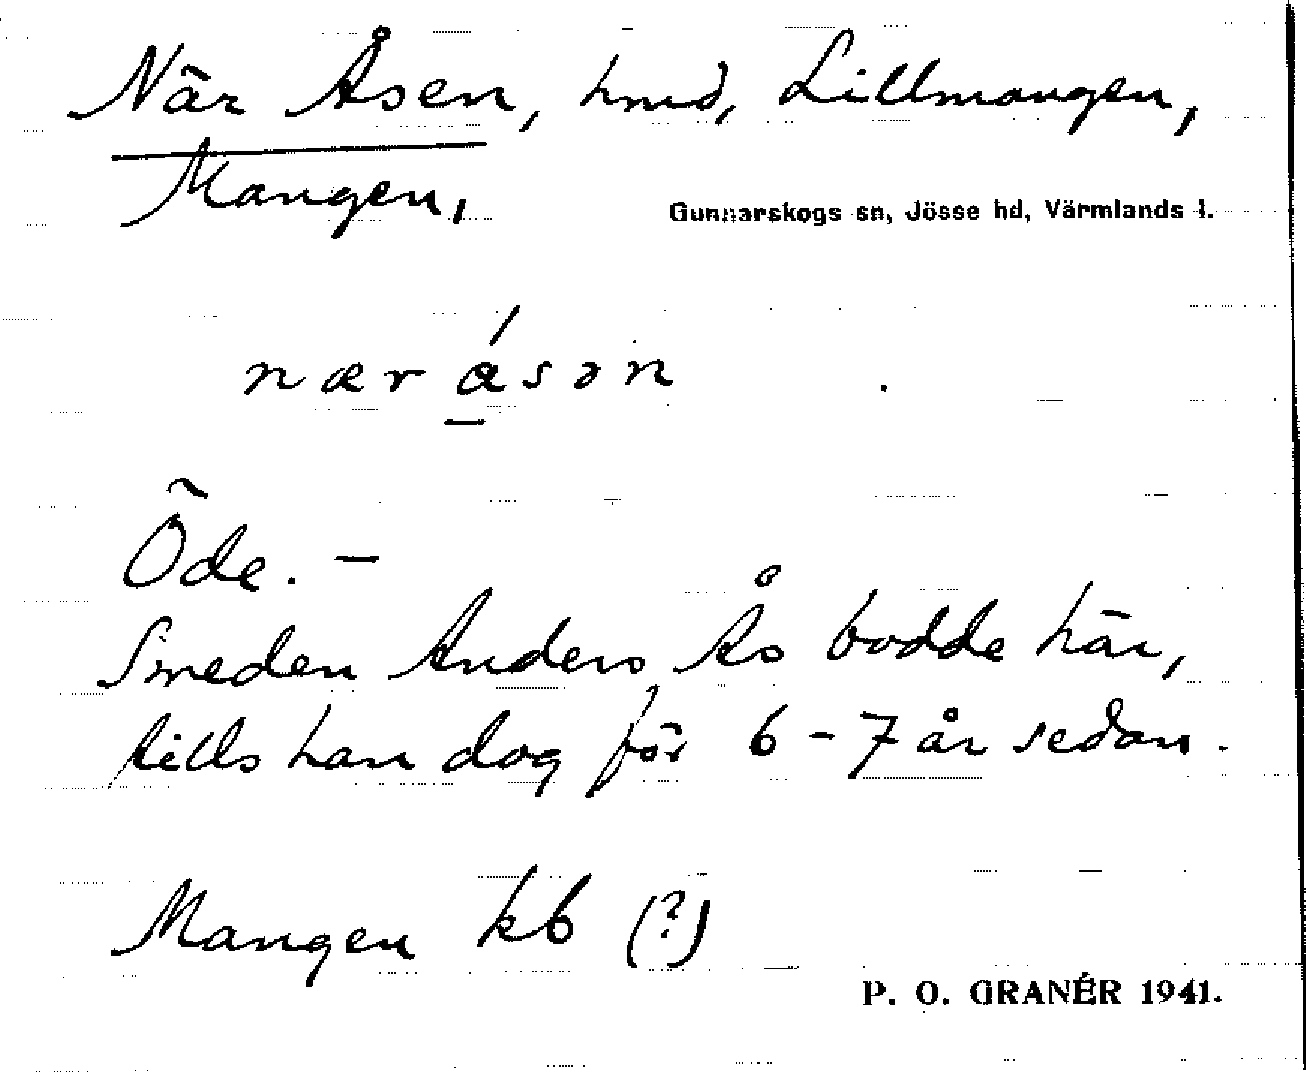 När Åsen, hmd, Lillmangen,
Mangen,
Gunnarskogs sn, Jösse hd, Värmlands l.
nær ásən
Öde. –
Smeden Anders Ås bodde här,
tills han dog för 6 – 7 år sedan.
Mangen kb (?)
P. O. GRANÉR 1941.